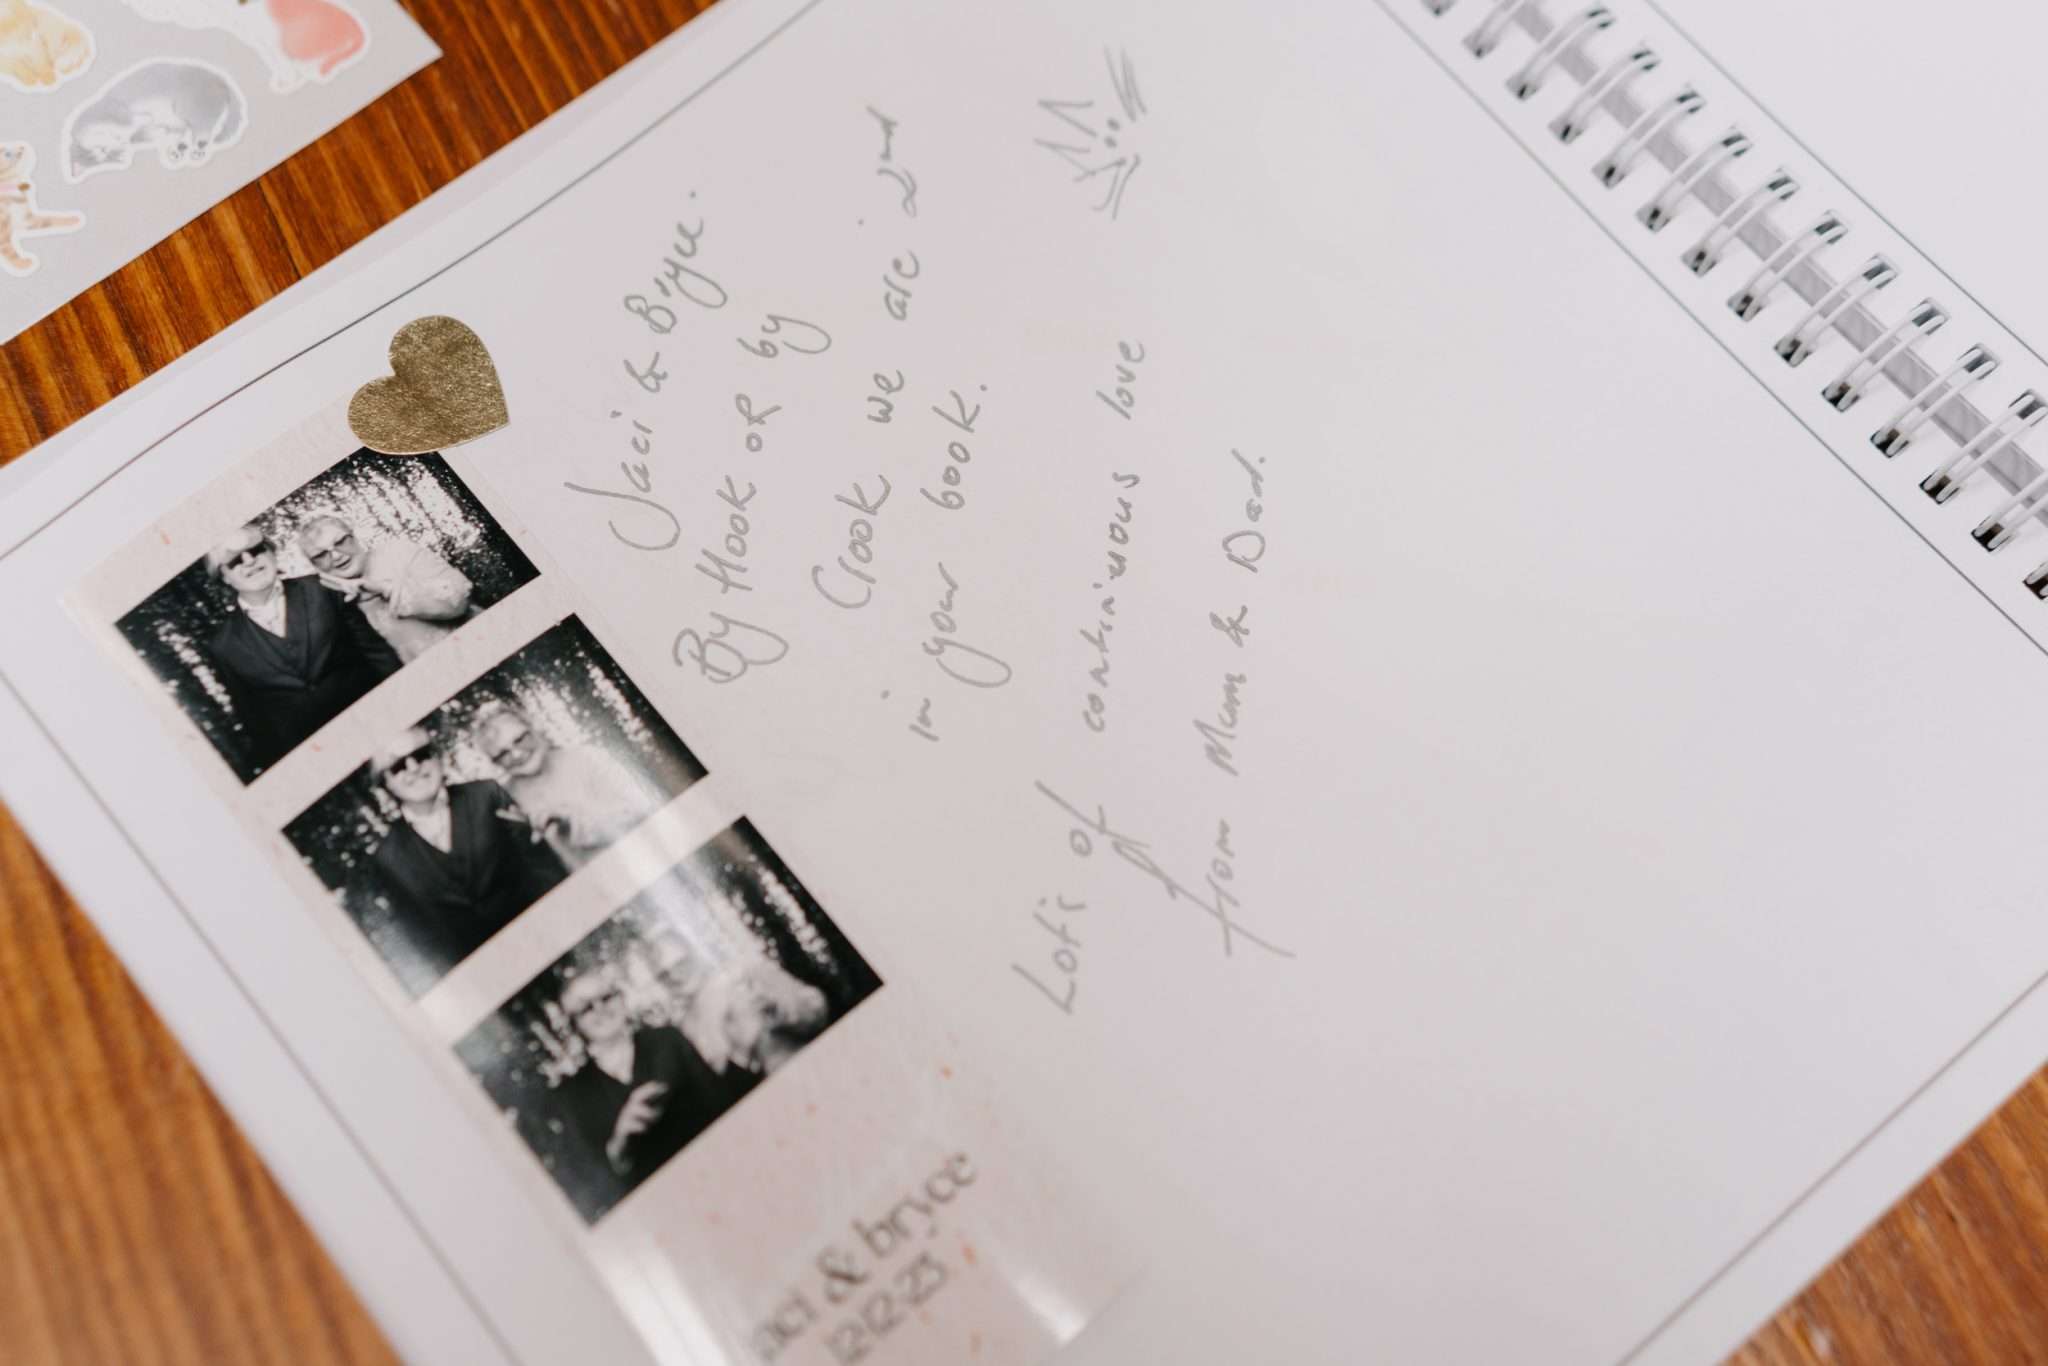 Jaci & Bryce.
By Hook or by
Crook we are 2nd
in your book.
Lots of continuous love
from Mum & Dad.
jaci & bryce
12·12·23